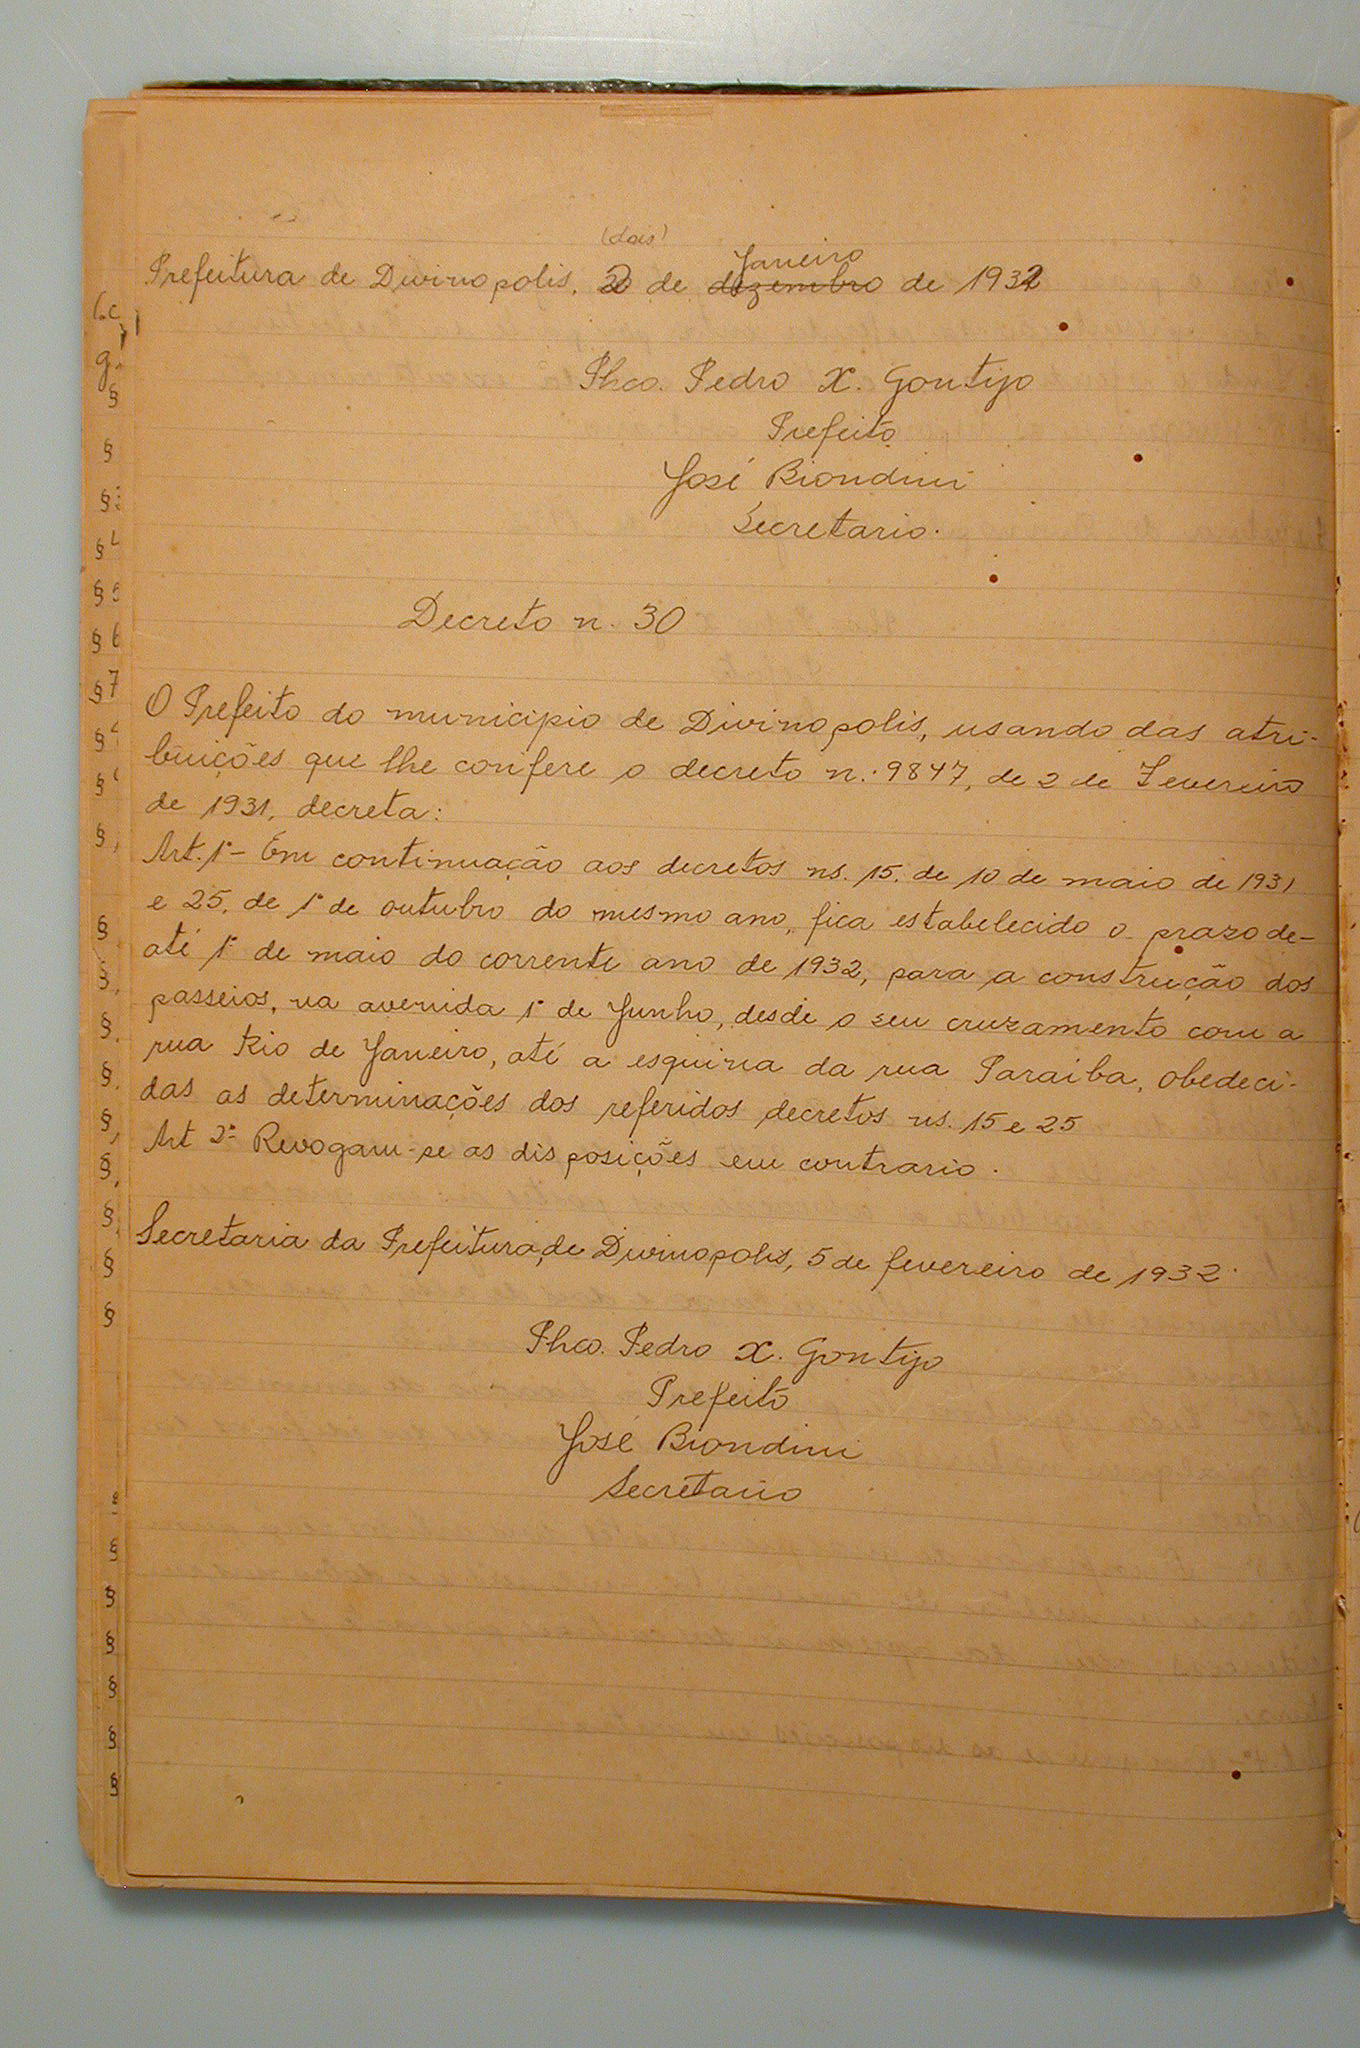 (dois)
Janeiro
Prefeitura de Divinopolis, 2 de dezembro de 1932
Phco. Pedro X. Gontijo
Prefeito
José Biondini
Secretario.
Decreto n. 30
O Prefeito do municipio de Divinopolis, usando das atri-
buições que lhe confere o decreto n. 9847, de 2 de Fevereiro
de 1931, decreta:
Art. 1º - Em continuação aos decretos ns. 15, de 10 de maio de 1931
e 25, de 1º de outubro do mesmo ano, fica estabelecido o prazo de-
até 1º de maio do corrente ano de 1932, para a construção dos
passeios, na avenida 1º de Junho, desde o seu cruzamento com a
rua Rio de Janeiro, até a esquina da rua Paraiba, obedeci-
das as determinações dos referidos decretos ns. 15 e 25
Art 2º Revogam-se as disposições em contrario.
Secretaria da Prefeitura, de Divinopolis, 5 de fevereiro de 1932.
Phco. Pedro X. Gontijo
Prefeito
José Biondini
Secretario